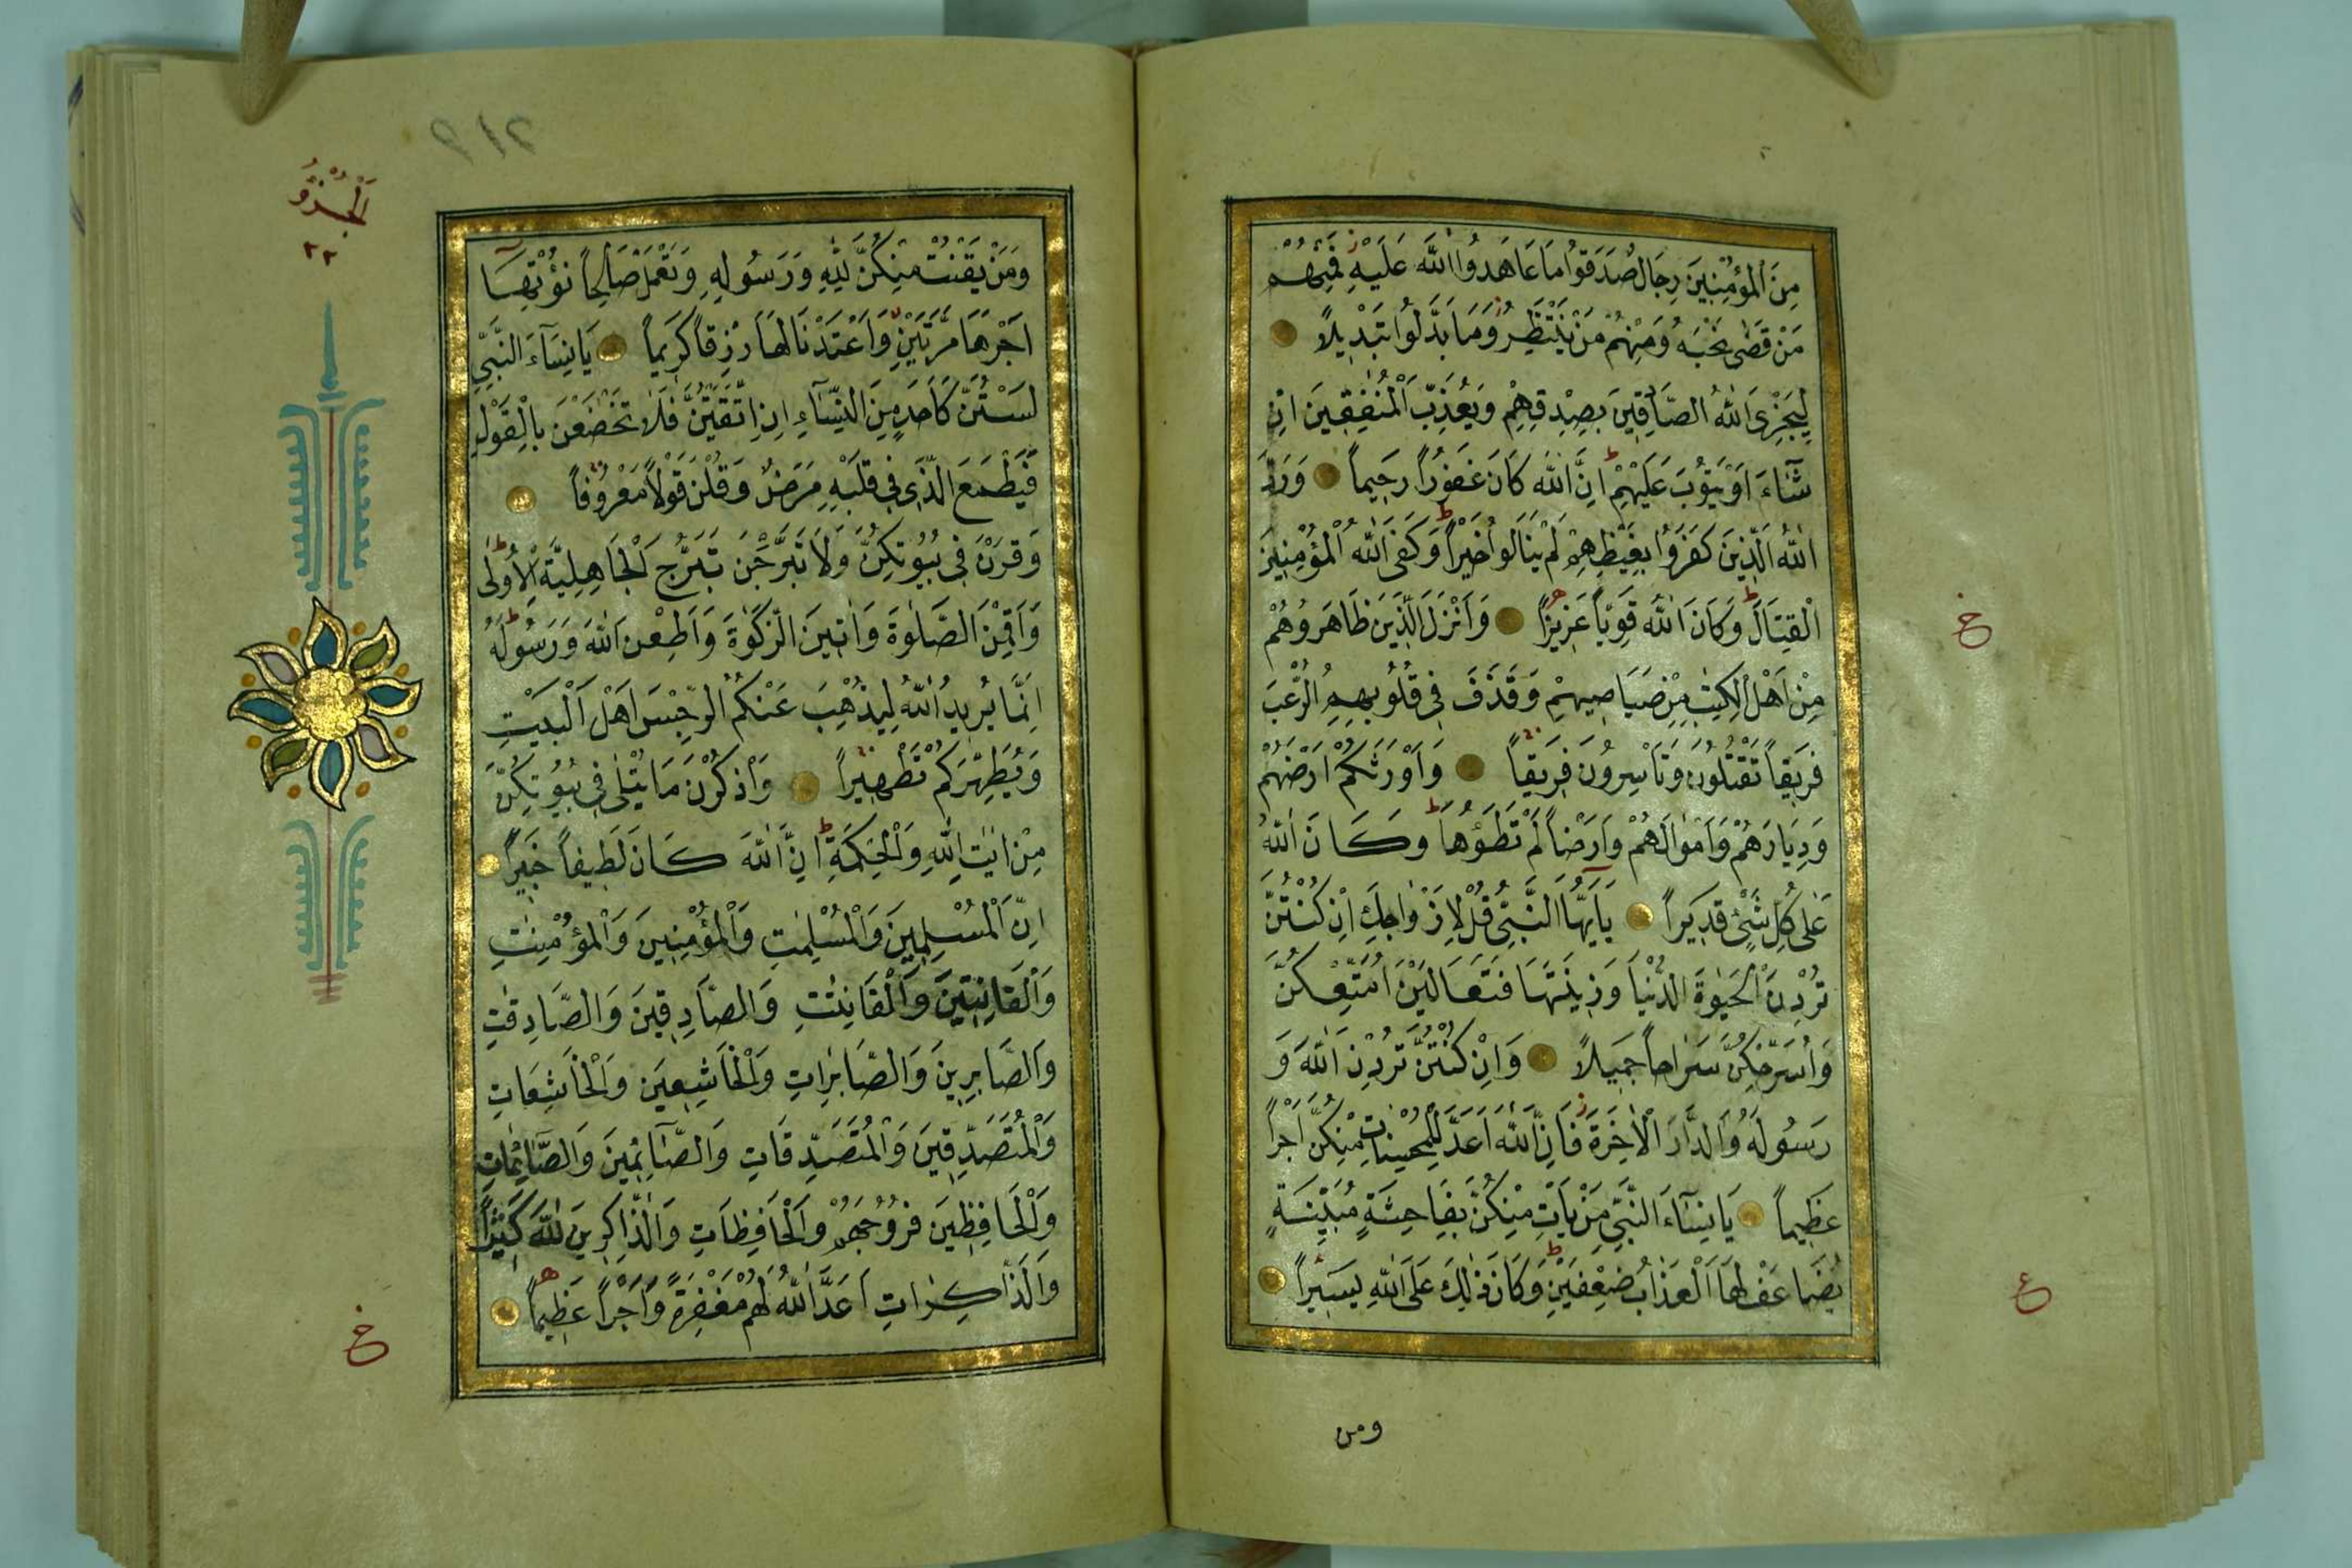 مِنَ الْمُؤْمِنِينَ رِجَالٌ صَدَقُوا مَا عَاهَدُوا اللَّهَ عَلَيْهِ فَمِنْهُمْ
مَنْ قَضَى نَحْبَهُ وَمِنْهُمْ مَنْ يَنْتَظِرُ وَمَا بَدَّلُوا تَبْدِيلاً
لِيَجْزِىَ اللَّهُ الصَّادِقِينَ بِصِدْقِهِمْ وَيُعَذِّبَ الْمُنٰفِقِينَ اِنْ
شَآءَ اَوْ يَتُوبَ عَلَيْهِمْ ط اِنَّ اللَّهَ كَانَ غَفُورًا رَحِيماً وَرَدَّ
اللَّهُ الَّذِينَ كَفَرُوا بِغَيْظِهِمْ لَمْ يَنَالُوا خَيْراً ط وَكَفَى اللَّهُ الْمُؤْمِنِينَ
الْقِتَالَ ط وَكَانَ اللَّهُ قَوِيّاً عَزِيزًا وَاَنْزَلَ الَّذِينَ ظَاهَرُوهُمْ
مِنْ اَهْلِ الْكِتٰبِ مِنْ صَيَاصِيهِمْ وَقَذَفَ فِى قُلُوبِهِمُ الرُّعْبَ
فَرِيقاً تَقْتُلُونَ وَتَاْسِرُونَ فَرِيقاً وَاَوْرَثَكُمْ اَرْضَهُمْ
وَدِيَارَهُمْ وَاَمْوَالَهُمْ وَاَرْضاً لَمْ تَطَؤُهَا ط وَكَانَ اللَّهُ
عَلٰى كُلِّ شَىْءٍ قَدِيراً يَآاَيُّهَا النَّبِىُّ قُلْ لِاَزْوَاجِكَ اِنْ كُنْتُنَّ
تُرِدْنَ الْحَيٰوةَ الدُّنْيَا وَزِينَتَهَا فَتَعَالَيْنَ اُمَتِّعْكُنَّ
وَاُسَرِّحْكُنَّ سَرَاحاً جَمِيلاً وَاِنْ كُنْتُنَّ تُرِدْنَ اللَّهَ وَ
رَسُولَهُ وَالدَّارَ الْاٰخِرَةَ فَاِنَّ اللَّهَ اَعَدَّ لِلْمُحْسِنَاتِ مِنْكُنَّ اَجْراً
عَظِيماً يَا نِسَآءَ النَّبِىِّ مَنْ يَاْتِ مِنْكُنَّ بِفَاحِشَةٍ مُبَيِّنَةٍ
يُضَاعَفْ لَهَا الْعَذَابُ ضِعْفَيْنِ ط وَكَانَ ذٰلِكَ عَلَى اللَّهِ يَسِيراً
خ
ع
ومن
الْجُزْؤُ
٢٢
وَمَنْ يَقْنُتْ مِنْكُنَّ لِلَّهِ وَرَسُولِهِ وَتَعْمَلْ صَالِحاً نُؤْتِهَا
اَجْرَهَا مَرَّتَيْنِ وَاَعْتَدْنَا لَهَا رِزْقاً كَرِيماً يَا نِسَآءَ النَّبِىِّ
لَسْتُنَّ كَاَحَدٍ مِنَ النِّسَآءِ اِنِ اتَّقَيْتُنَّ فَلَا تَخْضَعْنَ بِالْقَوْلِ
فَيَطْمَعَ الَّذِى فِى قَلْبِهِ مَرَضٌ وَقُلْنَ قَوْلاً مَعْرُوفاً
وَقَرْنَ فِى بُيُوتِكُنَّ وَلَا تَبَرَّجْنَ تَبَرُّجَ الْجَاهِلِيَّةِ الْاُولٰى
وَاَقِمْنَ الصَّلٰوةَ وَاٰتِينَ الزَّكٰوةَ وَاَطِعْنَ اللَّهَ وَرَسُولَهُ ط
اِنَّمَا يُرِيدُ اللَّهُ لِيُذْهِبَ عَنْكُمُ الرِّجْسَ اَهْلَ الْبَيْتِ
وَيُطَهِّرَكُمْ تَطْهِيراً وَاذْكُرْنَ مَا يُتْلٰى فِى بُيُوتِكُنَّ
مِنْ اٰيٰتِ اللَّهِ وَالْحِكْمَةِ ط اِنَّ اللَّهَ كَانَ لَطِيفاً خَبِيراً
اِنَّ الْمُسْلِمِينَ وَالْمُسْلِمٰتِ وَالْمُؤْمِنِينَ وَالْمُؤْمِنٰتِ
وَالْقَانِتِينَ وَالْقَانِتٰتِ وَالصَّادِقِينَ وَالصَّادِقٰتِ
وَالصَّابِرِينَ وَالصَّابِرَاتِ وَالْخَاشِعِينَ وَالْخَاشِعَاتِ
وَالْمُتَصَدِّقِينَ وَالْمُتَصَدِّقَاتِ وَالصَّآئِمِينَ وَالصَّآئِمَاتِ
وَالْحَافِظِينَ فُرُوجَهُمْ وَالْحَافِظَاتِ وَالذَّاكِرِينَ اللَّهَ كَثِيراً
وَالذَّاكِرَاتِ اَعَدَّ اللَّهُ لَهُمْ مَغْفِرَةً وَاَجْراً عَظِيماً
خ